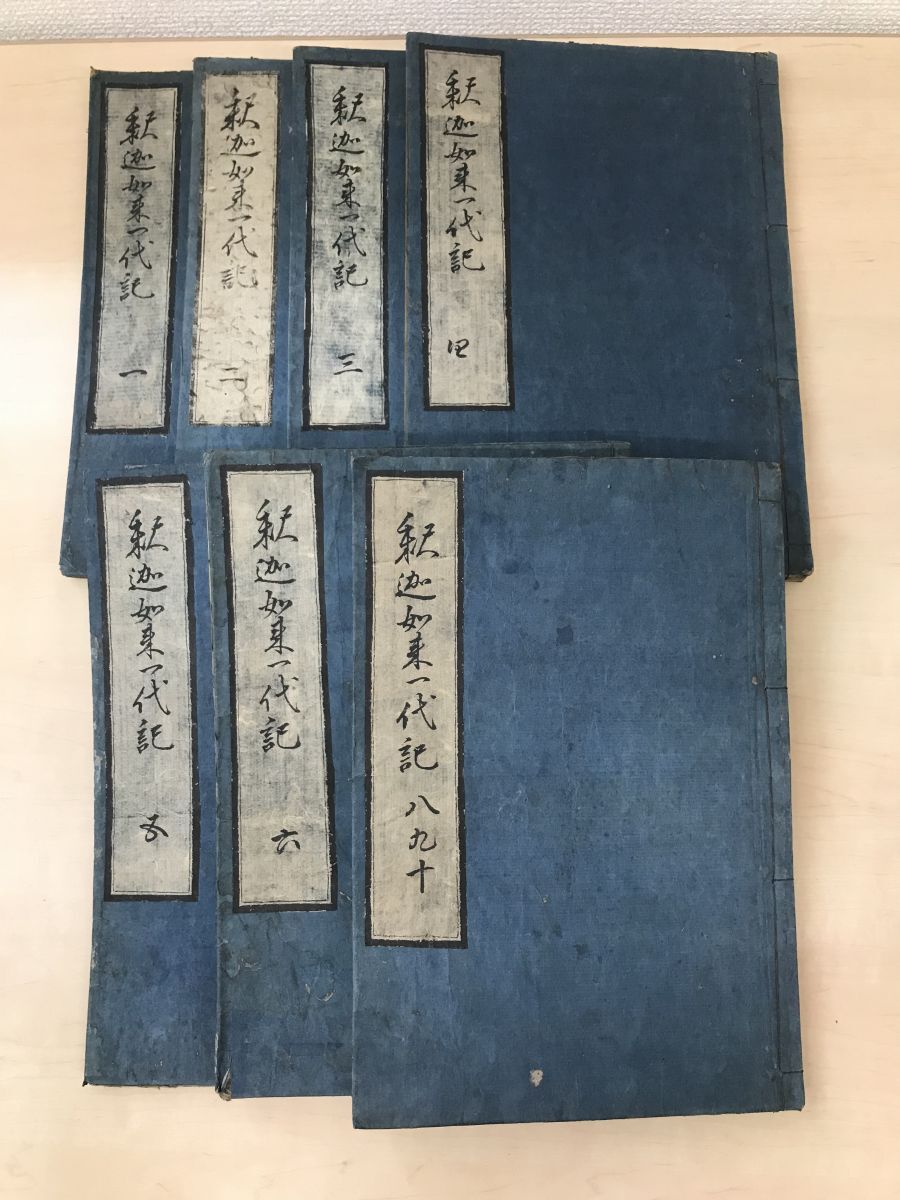 釈迦如来一代記 一
釈迦如来一代記 二
釈迦如来一代記 三
釈迦如来一代記 四
釈迦如来一代記 五
釈迦如来一代記 六
釈迦如来一代記 八九十